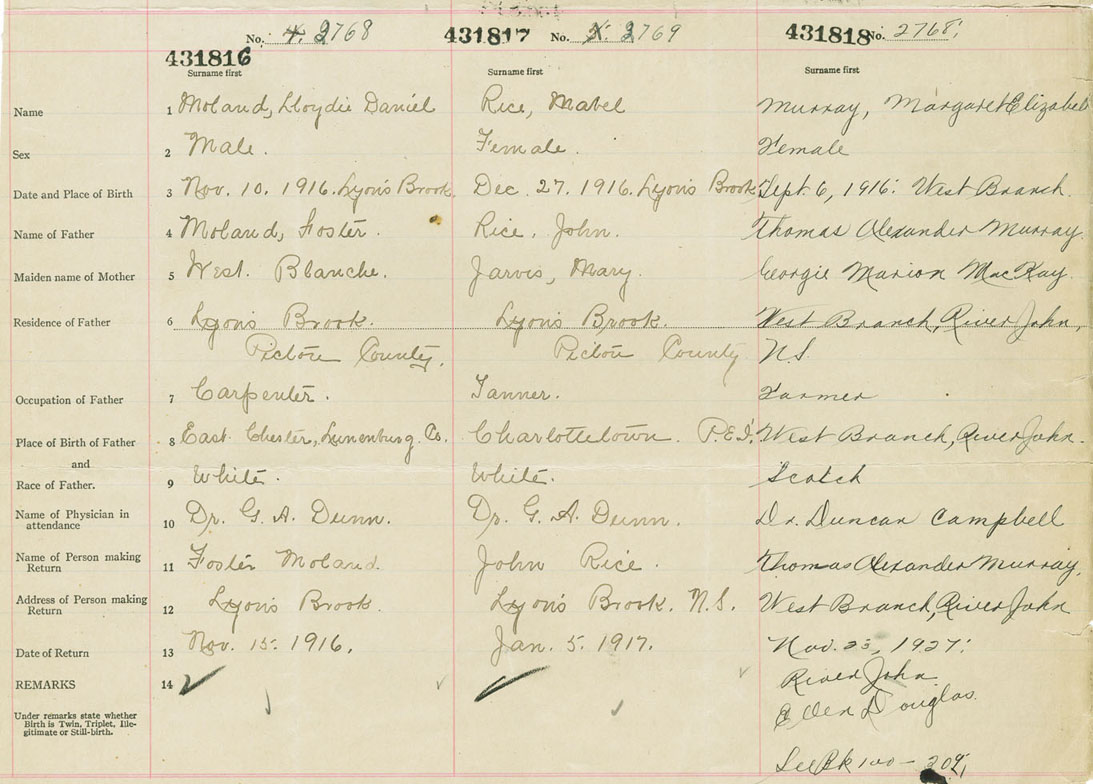 No. 2768 431817 No. 2769 431818 No. 2768
431816
Surname first Surname first Surname first
Name 1 Moland, Lloydie Daniel Rice, Mabel Murray, Margaret Elizabeth
Sex 2 Male. Female. Female
Date and Place of Birth 3 Nov. 10. 1916. Lyon's Brook. Dec. 27. 1916. Lyon's Brook Sept. 6, 1916: West Branch.
Name of Father 4 Moland, Foster. Rice. John. Thomas Alexander Murray.
Maiden name of Mother 5 West. Blanche. Jarvis, Mary. Georgie Marion MacKay.
Residence of Father 6 Lyon's Brook. Lyon's Brook. West Branch, River John,
Pictou County. Pictou County N.S.
Occupation of Father 7 Carpenter. Tanner. Farmer
Place of Birth of Father 8 East Chester, Lunenburg. Co. Charlottetown. P.E.I. West Branch, River John.
and
Race of Father. 9 White. White. Scotch
Name of Physician in
attendance 10 Dr. G. A. Dunn. Dr. G. A. Dunn. Dr. Duncan Campbell
Name of Person making
Return 11 Foster Moland. John Rice. Thomas Alexander Murray.
Address of Person making
Return 12 Lyon's Brook. Lyon's Brook. N.S. West Branch, River John
Date of Return 13 Nov. 15. 1916. Jan. 5. 1917. Nov. 1927.
REMARKS 14 River John
Under remarks state whether
Birth is Twin, Triplet, Ille-
gitimate or Still-birth.
Douglas.
See Bk 100 - 209,